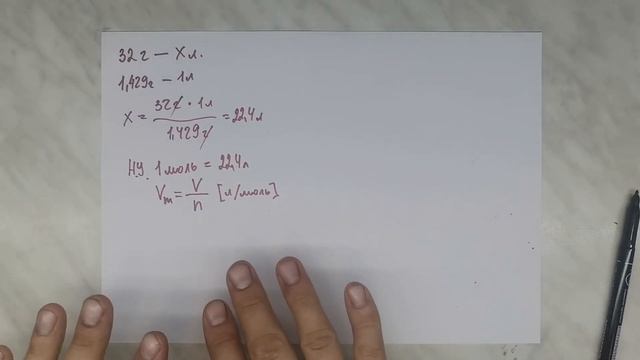 32 г — X л.
1,429 г — 1 л
X = 32 г · 1 л / 1,429 г = 22,4 л
Н.У. 1 моль = 22,4 л
Vm = V / n [л/моль]